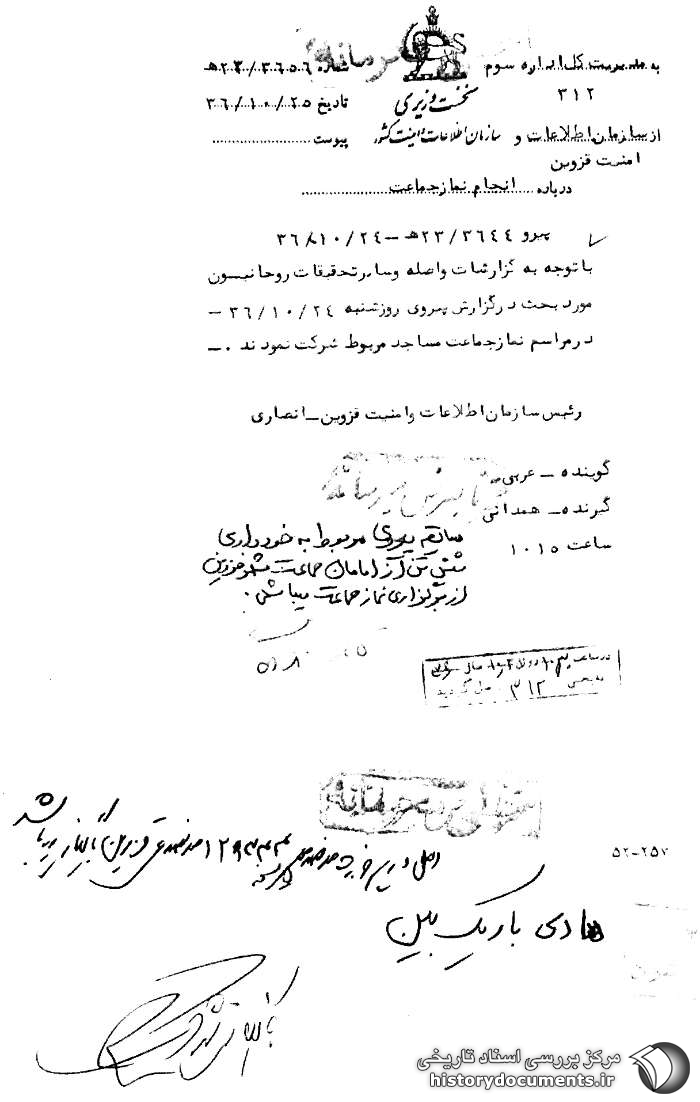 به مدیریت کل اداره سوم
۳۱۲
شماره ۲۳/۳۶۵۶ه‍
نخست وزیری
تاریخ ۳۶/۱۰/۲۵
از سازمان اطلاعات و
سازمان اطلاعات و امنیت کشور
پیوست
امنیت قزوین
درباره انجام نماز جماعت
پیرو ۲۳/۳۶۴۴ه‍ – ۳۶/۱۰/۲۴
با توجه به گزارشات واصله و سایر تحقیقات روحانیون
مورد بحث در گزارش پیروی روز شنبه ۳۶/۱۰/۲۴ –
در مراسم نماز جماعت مساجد مربوط شرکت نمودند ۰–
رئیس سازمان اطلاعات و امنیت قزوین – انصاری
گوینده – عربی
گیرنده – همدانی
ساعت ۱۰۱۵
سابقه پیروی مربوط به خودداری
شش تن از امامان جماعت شهر قزوین
از برگزاری نماز جماعت میباشد.
در ساعت
به بخش ۳۱۲
۵۲-۲۵۷
هادی باریک بین
مرکز بررسی اسناد تاریخی
historydocuments.ir